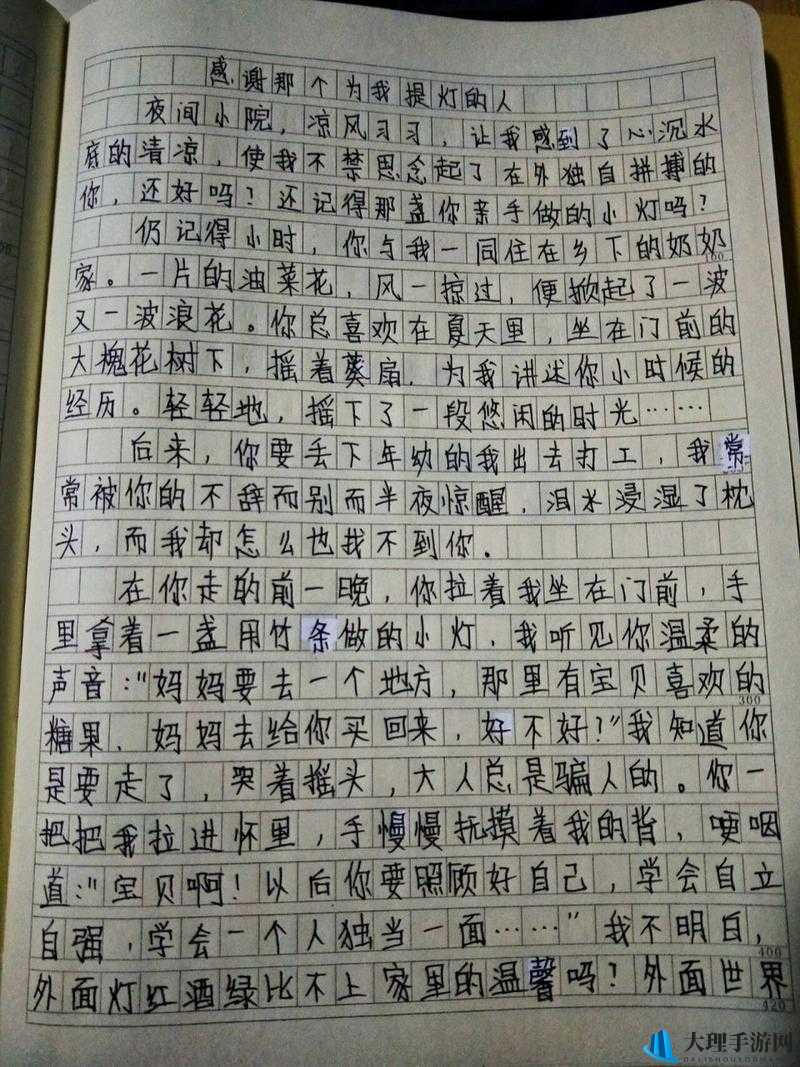 感谢那个为我提灯的人
夜间小院，凉风习习，让我感到了心沉水
底的清凉，使我不禁思念起了在外独自拼搏的
你，还好吗？还记得那盏你亲手做的小灯吗？
仍记得小时，你与我一同住在乡下的奶奶
100
家。一片的油菜花，风一掠过，便掀起了一波
又一波浪花。你总喜欢在夏天里，坐在门前的
大槐花树下，摇着葵扇，为我讲述你小时候的
经历。轻轻地，摇下了一段悠闲的时光……
后来，你要丢下年幼的我出去打工，我常
常被你的不辞而别而半夜惊醒，泪水浸湿了枕
头，而我却怎么也找不到你。
在你走的前一晚，你拉着我坐在门前，手
里拿着一盏用竹条做的小灯，我听见你温柔的
声音：“妈妈要去一个地方，那里有宝贝喜欢的
300
糖果，妈妈去给你买回来，好不好？”我知道你
是要走了，哭着摇头，大人总是骗人的。你一
把把我拉进怀里，手慢慢抚摸着我的背，哽咽
道：“宝贝啊！以后你要照顾好自己，学会自立
自强，学会一个人独当一面……”我不明白，
400
外面灯红酒绿比不上家里的温馨吗？外面世界
420
大理手游网
DALISHOUYOUWANG